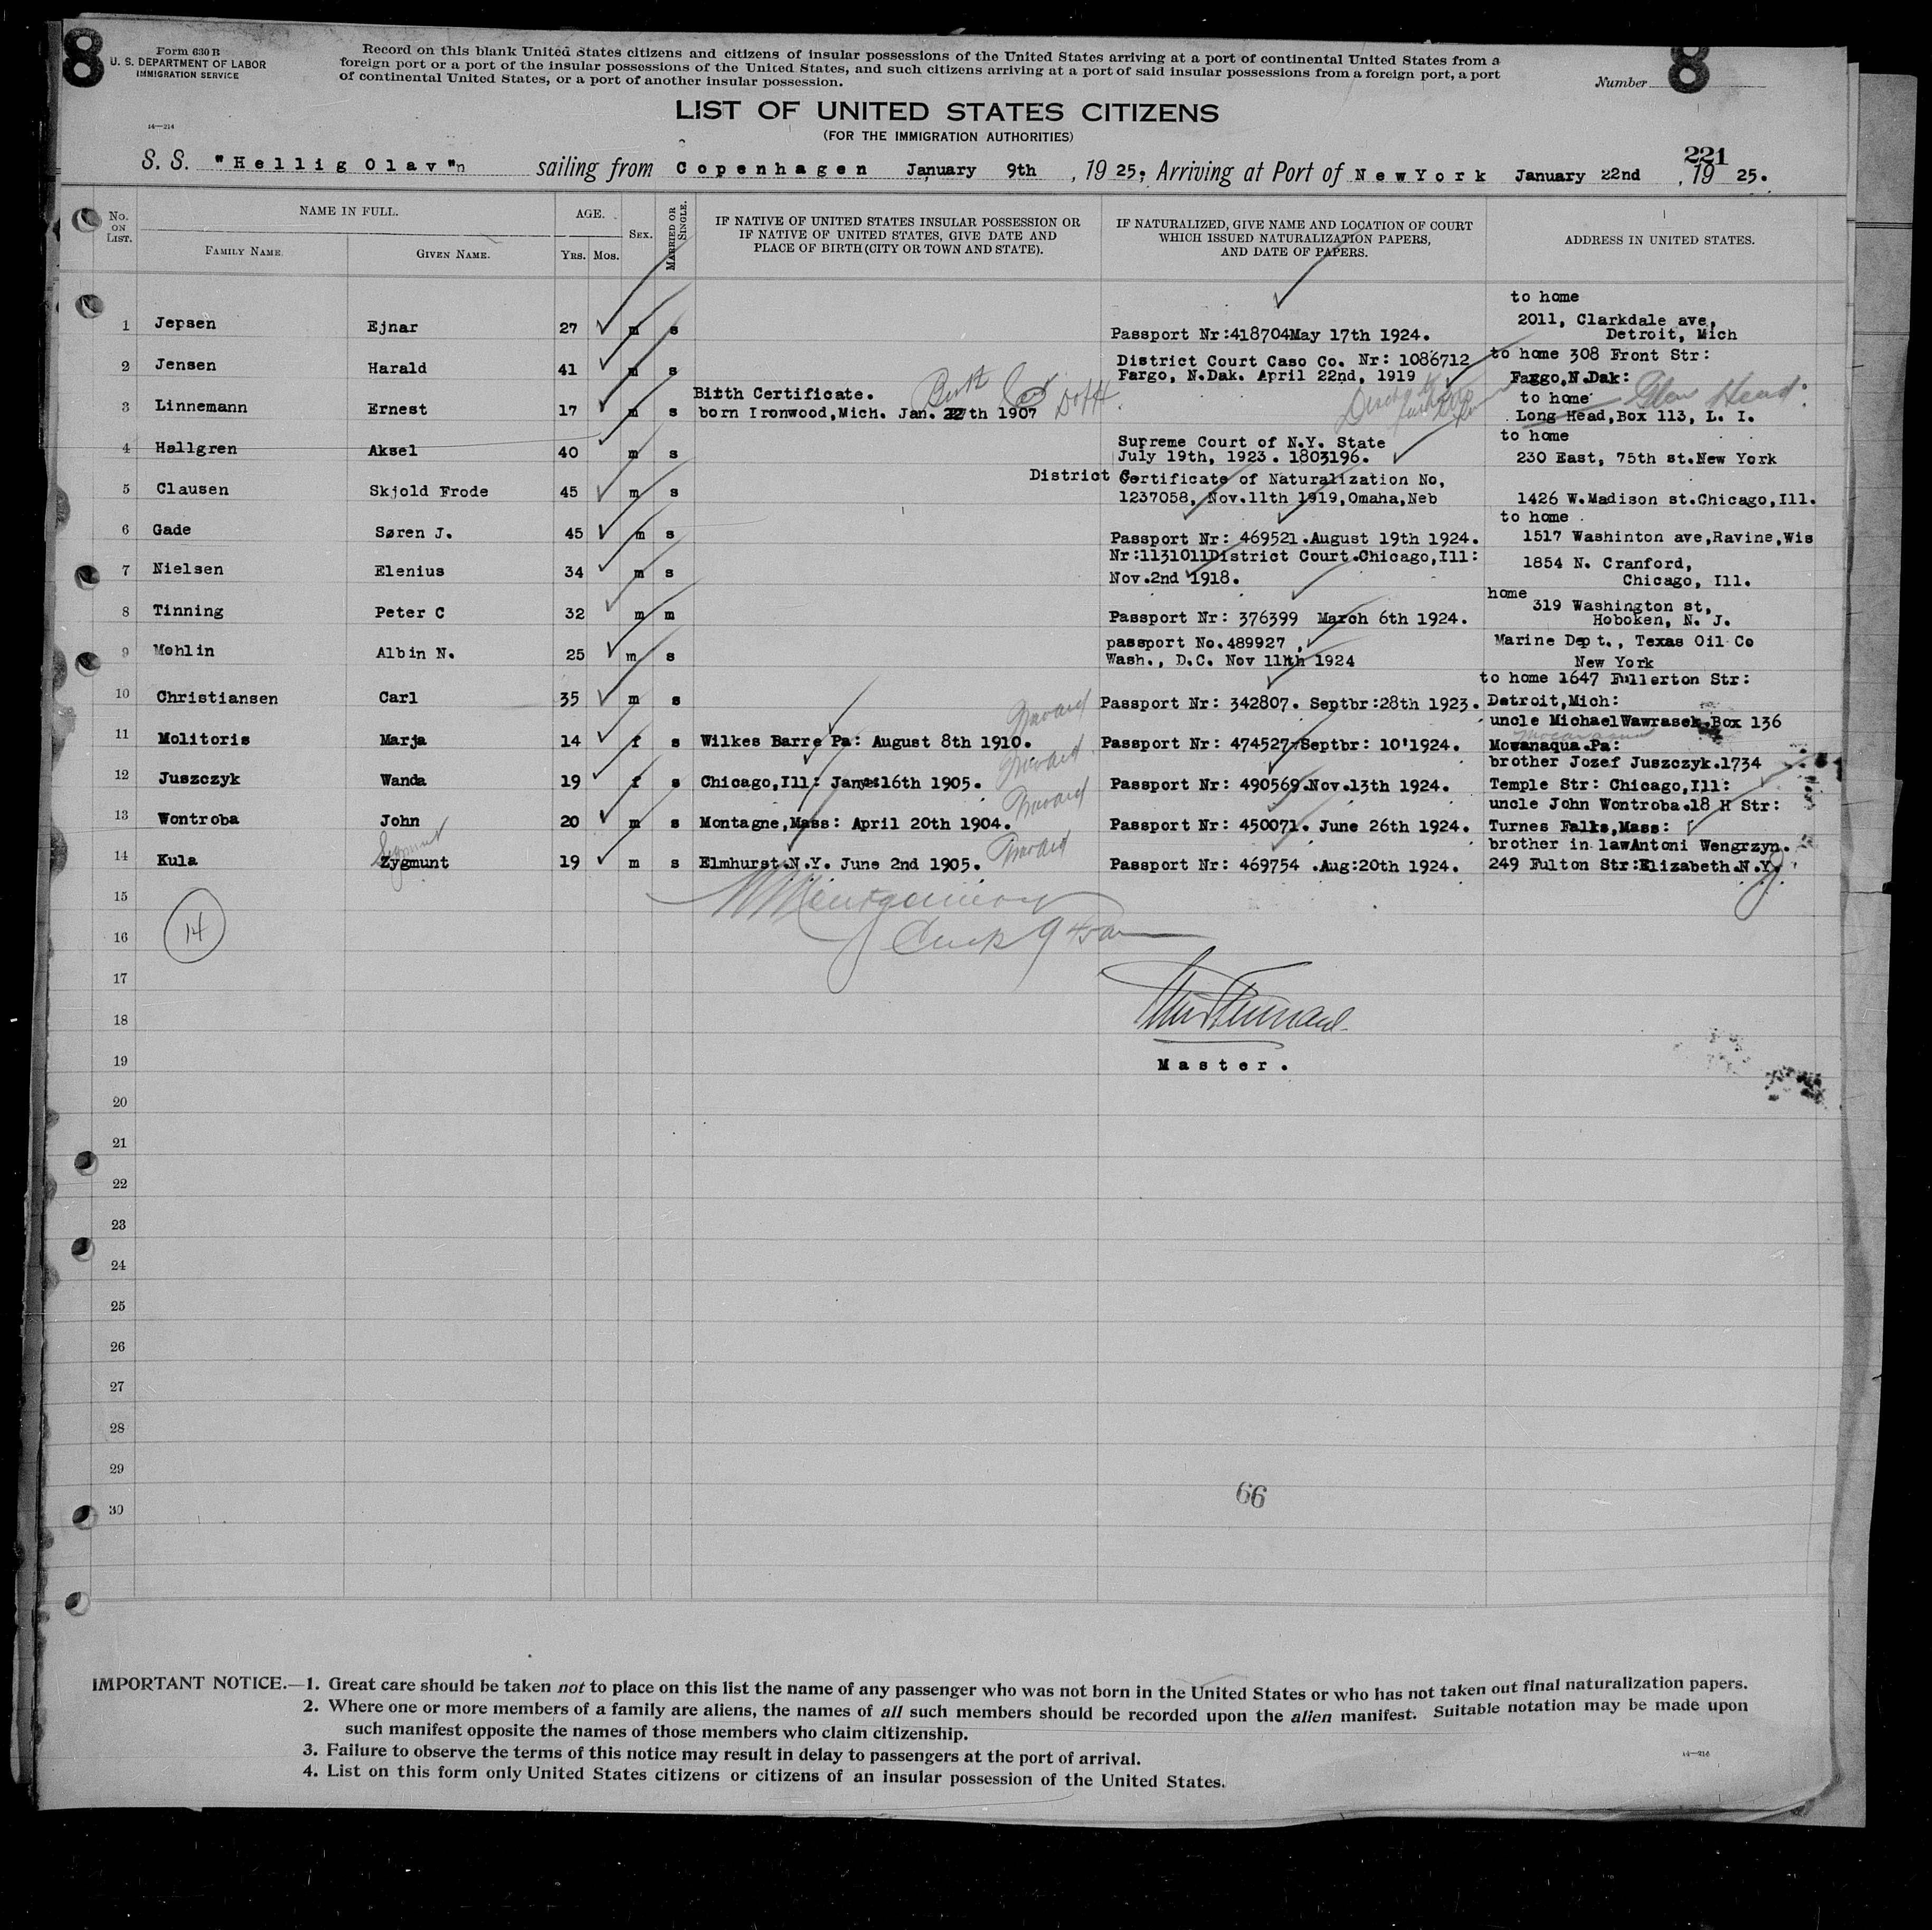 8
Form 630 B
U. S. DEPARTMENT OF LABOR
IMMIGRATION SERVICE
14—214
Record on this blank United States citizens and citizens of insular possessions of the United States arriving at a port of continental United States from a
foreign port or a port of the insular possessions of the United States, and such citizens arriving at a port of said insular possessions from a foreign port, a port
of continental United States, or a port of another insular possession.
Number 8
LIST OF UNITED STATES CITIZENS
(FOR THE IMMIGRATION AUTHORITIES)
221
S. S. "Hellig Olav"n sailing from Copenhagen January 9th, 1925; Arriving at Port of New York January 22nd, 1925.
No. ON LIST.
NAME IN FULL.
FAMILY NAME.
GIVEN NAME.
AGE.
YRS. MOS.
SEX.
MARRIED OR SINGLE.
IF NATIVE OF UNITED STATES INSULAR POSSESSION OR
IF NATIVE OF UNITED STATES, GIVE DATE AND
PLACE OF BIRTH (CITY OR TOWN AND STATE).
IF NATURALIZED, GIVE NAME AND LOCATION OF COURT
WHICH ISSUED NATURALIZATION PAPERS,
AND DATE OF PAPERS.
ADDRESS IN UNITED STATES.
to home
2011, Clarkdale ave,
1 Jepsen Ejnar 27 m s Passport Nr:418704May 17th 1924. Detroit, Mich
District Court Caso Co. Nr: 1086712 to home 308 Front Str:
2 Jensen Harald 41 m s Fargo, N.Dak. April 22nd, 1919 Fargo,N.Dak:
Birth Certificate. Birth to home Glen Head
3 Linnemann Ernest 17 m s born Ironwood,Mich. Jan. 22th 1907 Long Head,Box 113, L. I.
Supreme Court of N.Y. State to home
4 Hallgren Aksel 40 m s July 19th, 1923. 1803196. 230 East, 75th st.New York
District Certificate of Naturalization No,
5 Clausen Skjold Frode 45 m s 1237058, Nov.11th 1919,Omaha,Neb 1426 W.Madison st.Chicago,Ill.
to home
6 Gade Søren J. 45 m s Passport Nr: 469521.August 19th 1924. 1517 Washinton ave,Ravine,Wis
Nr:1131011District Court.Chicago,Ill: 1854 N. Cranford,
7 Nielsen Elenius 34 m s Nov.2nd 1918. Chicago, Ill.
home 319 Washington st,
8 Tinning Peter C 32 m m Passport Nr: 376399 March 6th 1924. Hoboken, N. J.
passport No.489927, Marine Dept., Texas Oil Co
9 Mohlin Albin N. 25 m s Wash., D.C. Nov 11th 1924 New York
to home 1647 Fullerton Str:
10 Christiansen Carl 35 m s Passport Nr: 342807. Septbr:28th 1923. Detroit,Mich:
uncle MichaelWawrasek.Box 136
11 Molitoris Marja 14 f s Wilkes Barre Pa: August 8th 1910. Passport Nr: 474527.Septbr: 10'1924. Mowanaqua.Pa:
brother Jozef Juszczyk.1734
12 Juszczyk Wanda 19 f s Chicago,Ill: 16th 1905. Passport Nr: 490569.Nov.13th 1924. Temple Str: Chicago,Ill:
uncle John Wontroba.18 H Str:
13 Wontroba John 20 m s Montagne,Mass: April 20th 1904. Passport Nr: 450071. June 26th 1924. Turnes Falls,Mass:
brother in lawAntoni Wengrzyn.
14 Kula Zygmunt 19 m s Elmhurst.N.Y. June 2nd 1905. Passport Nr: 469754 .Aug:20th 1924. 249 Fulton Str:Elizabeth.N.Y.
15
16 14
17
18
19 Master.
20
21
22
23
24
25
26
27
28
29
66
30
IMPORTANT NOTICE.—1. Great care should be taken not to place on this list the name of any passenger who was not born in the United States or who has not taken out final naturalization papers.
2. Where one or more members of a family are aliens, the names of all such members should be recorded upon the alien manifest. Suitable notation may be made upon
such manifest opposite the names of those members who claim citizenship.
3. Failure to observe the terms of this notice may result in delay to passengers at the port of arrival.
4. List on this form only United States citizens or citizens of an insular possession of the United States.